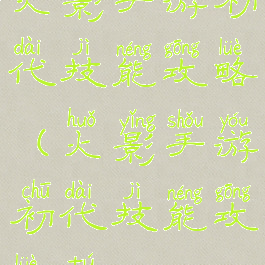 火影手游初
dài jì néng gōng lüè
代技能攻略
huǒ yǐng shǒu yóu
（火影手游
chū dài jì néng gōng
初代技能攻
lüè